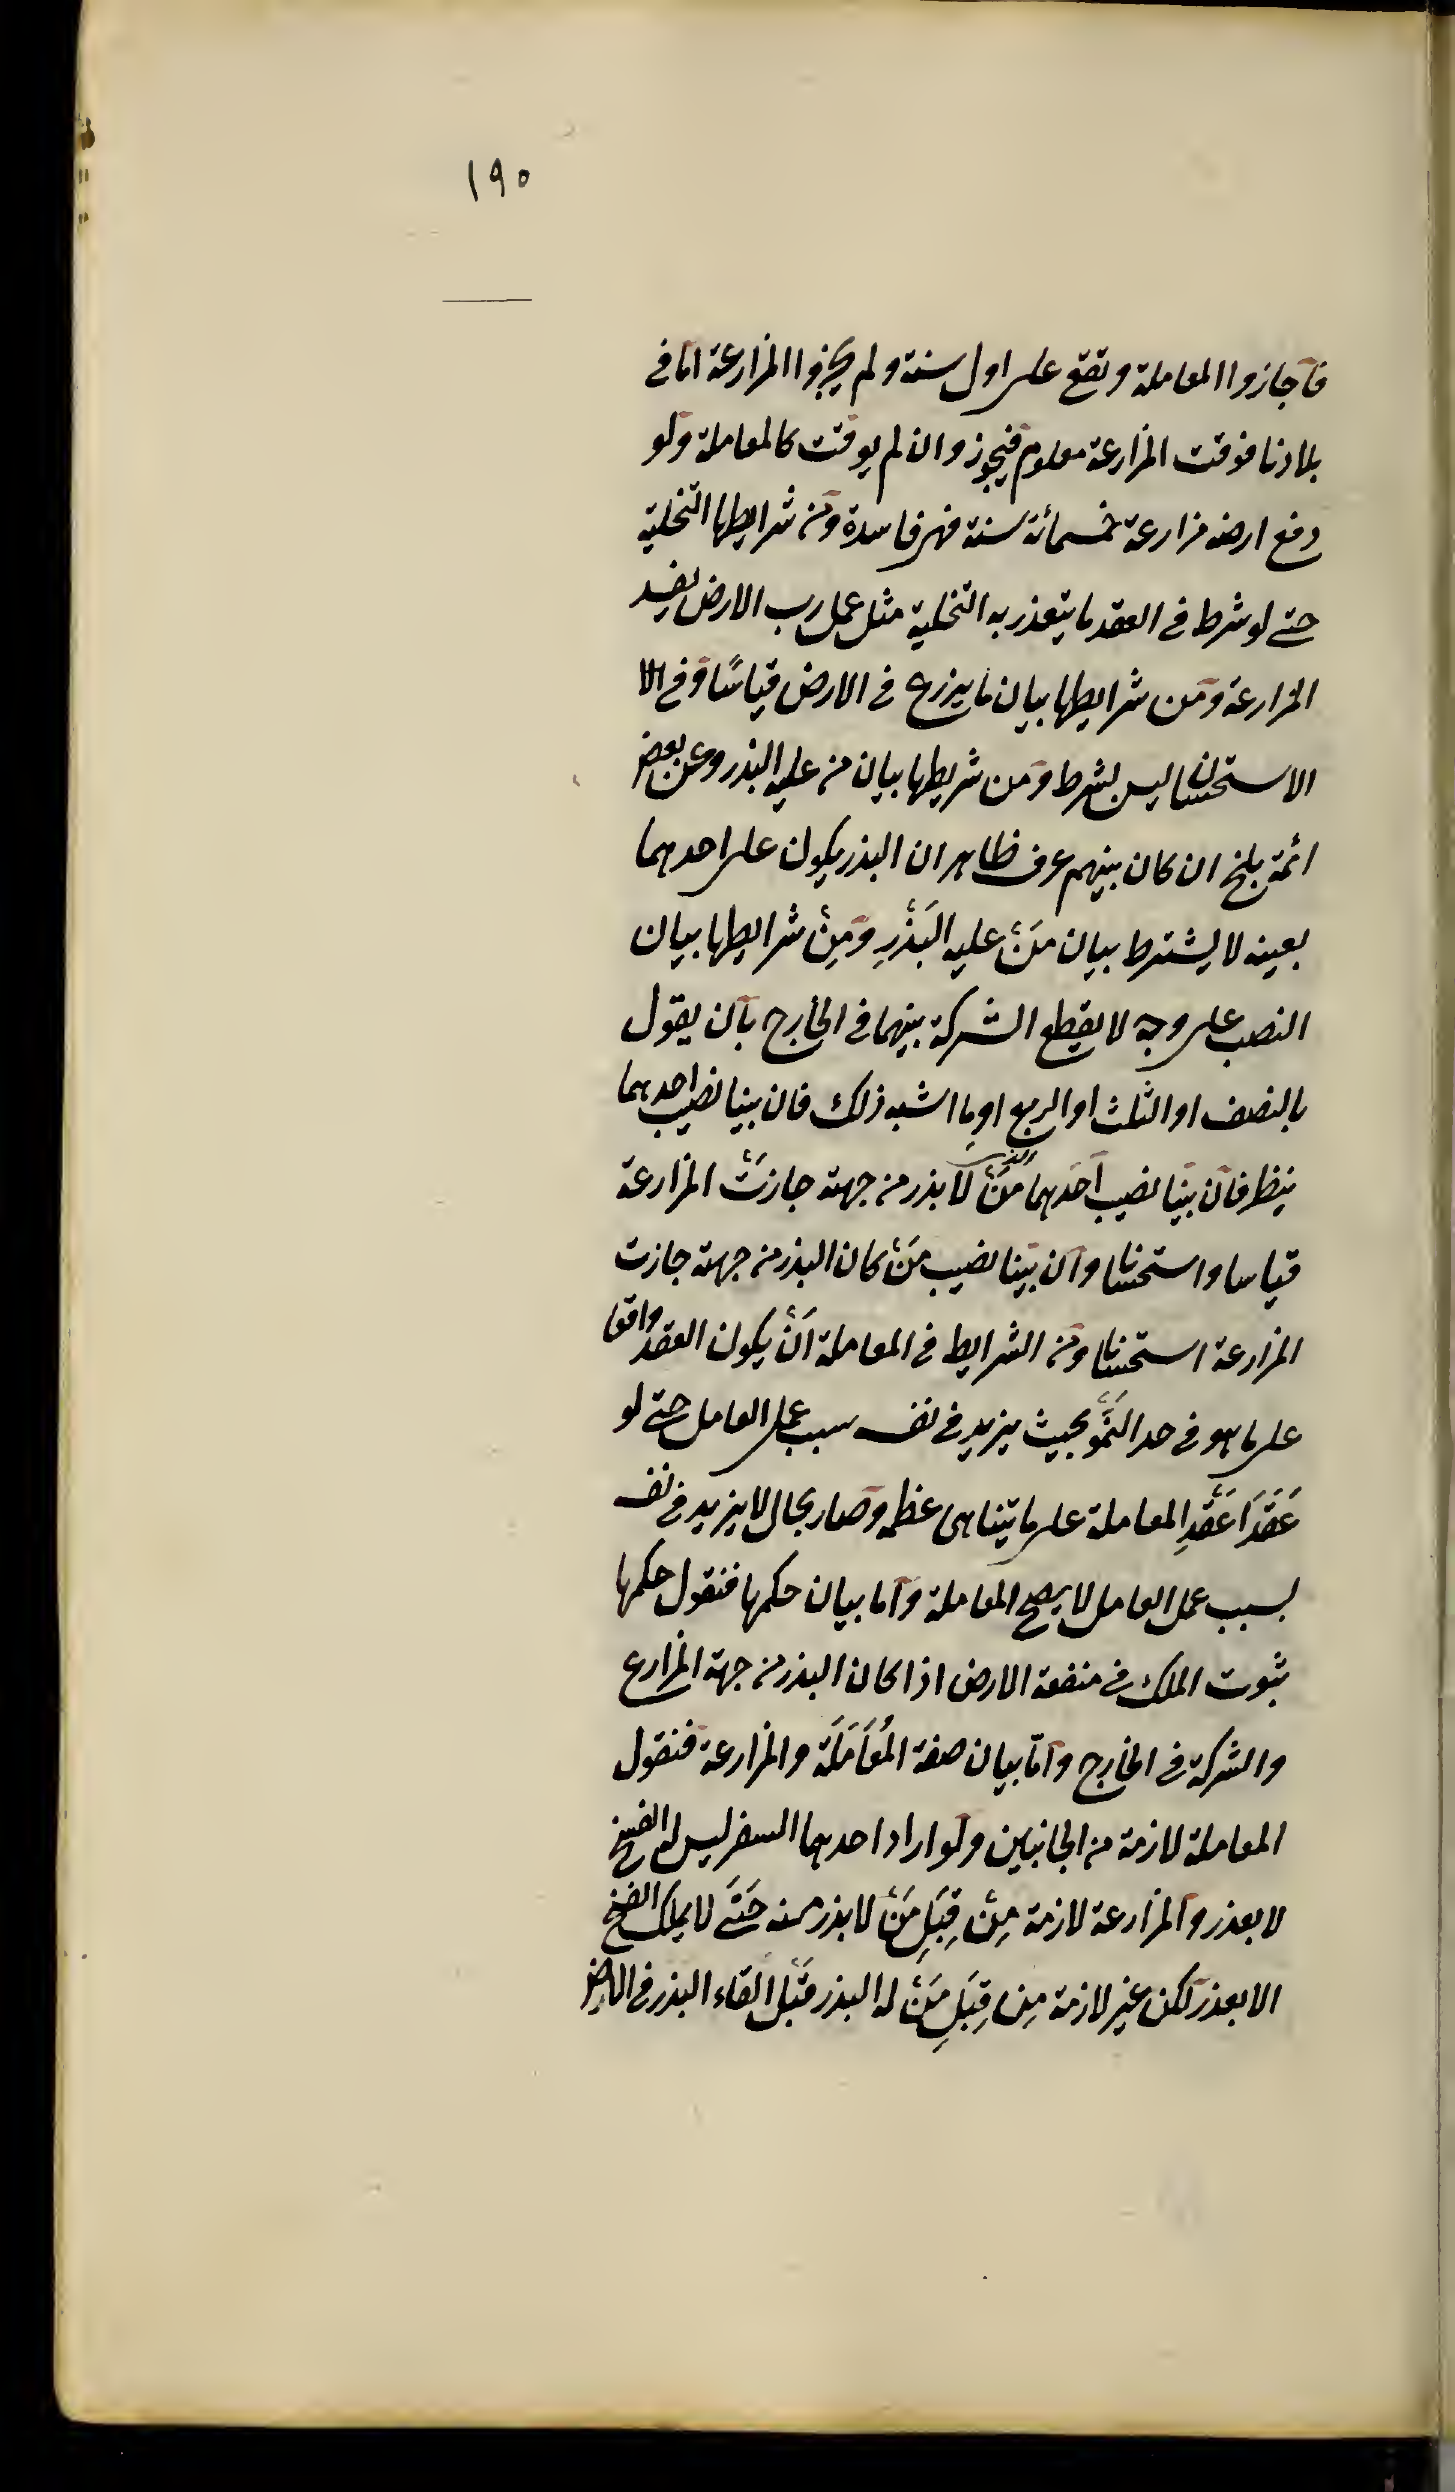 ١٩٠
فاجازوا المعاملة وتقع على اول سنة ولم يجيزوا المزارعة اما في
بلادنا فوقت المزارعة معلوم فيجوز وان لم يوقت كالمعاملة ولو
دفع ارضه مزارعة خمسمائة سنة فهى فاسدة ومن شرايطها التخلية
حتى لو شرط في العقد ما يتعذر به التخلية مثل عمل رب الارض يفسد
المزارعة ومن شرايطها بيان ما يزرع في الارض قياسًا وفي الا
الاستحسان ليس بشرط ومن شريطها بيان من عليه البذر وعن بعض
ائمة بلخ ان كان بينهم عرف ظاهر ان البذر يكون على احدهما
بعينه لا يشترط بيان مَنْ عليه البَذْرِ ومِنْ شرايطها بيان
النصب على وجه لا يقطع الشركة بينهما في الخارج بان يقول
بالنصف او الثلث او الربع او بما اشبه ذلك فان بينا نصيب احدهما
ينظر فان بيّنا نصيب احدهما مَنْ لا بذر من جهته جازتْ المزارعة
قياسا واستحسانا وان بيّنا نصيب مَنْ كان البذر من جهته جازت
المزارعة استحسانا ومن الشرايط في المعاملة اَنْ يكون العقد واقعا
على ما هو في حد النَمْو بحيث يزيد في نفسه سبب عمل العامل حتى لو
عَقَدَا عَقْدِ المعاملة على ما يتناهى عظمه وصار بحال لا يزيد في نفسه
بسبب عمل العامل لا يصح المعاملة واما بيان حكمها فنقول حكمها
ثبوت الملك في منفعة الارض اذا كان البذر من جهة المزارع
والشركة في الخارج وامّا بيان صفة المُعَامَلَة والمزارعة فنقول
المعاملة لازمة من الجانبين ولو اراد احدهما السفر ليس له الفسخ
لا بعذر والمزارعة لازمة مِنْ قِبَلِ مَنْ لا بذر منه حَتىَ لا يملك الفسخ
الا بعذر لكن غير لازمة مِن قِبَلِ مَنْ له البذر قَبْل القاء البذر في الارض